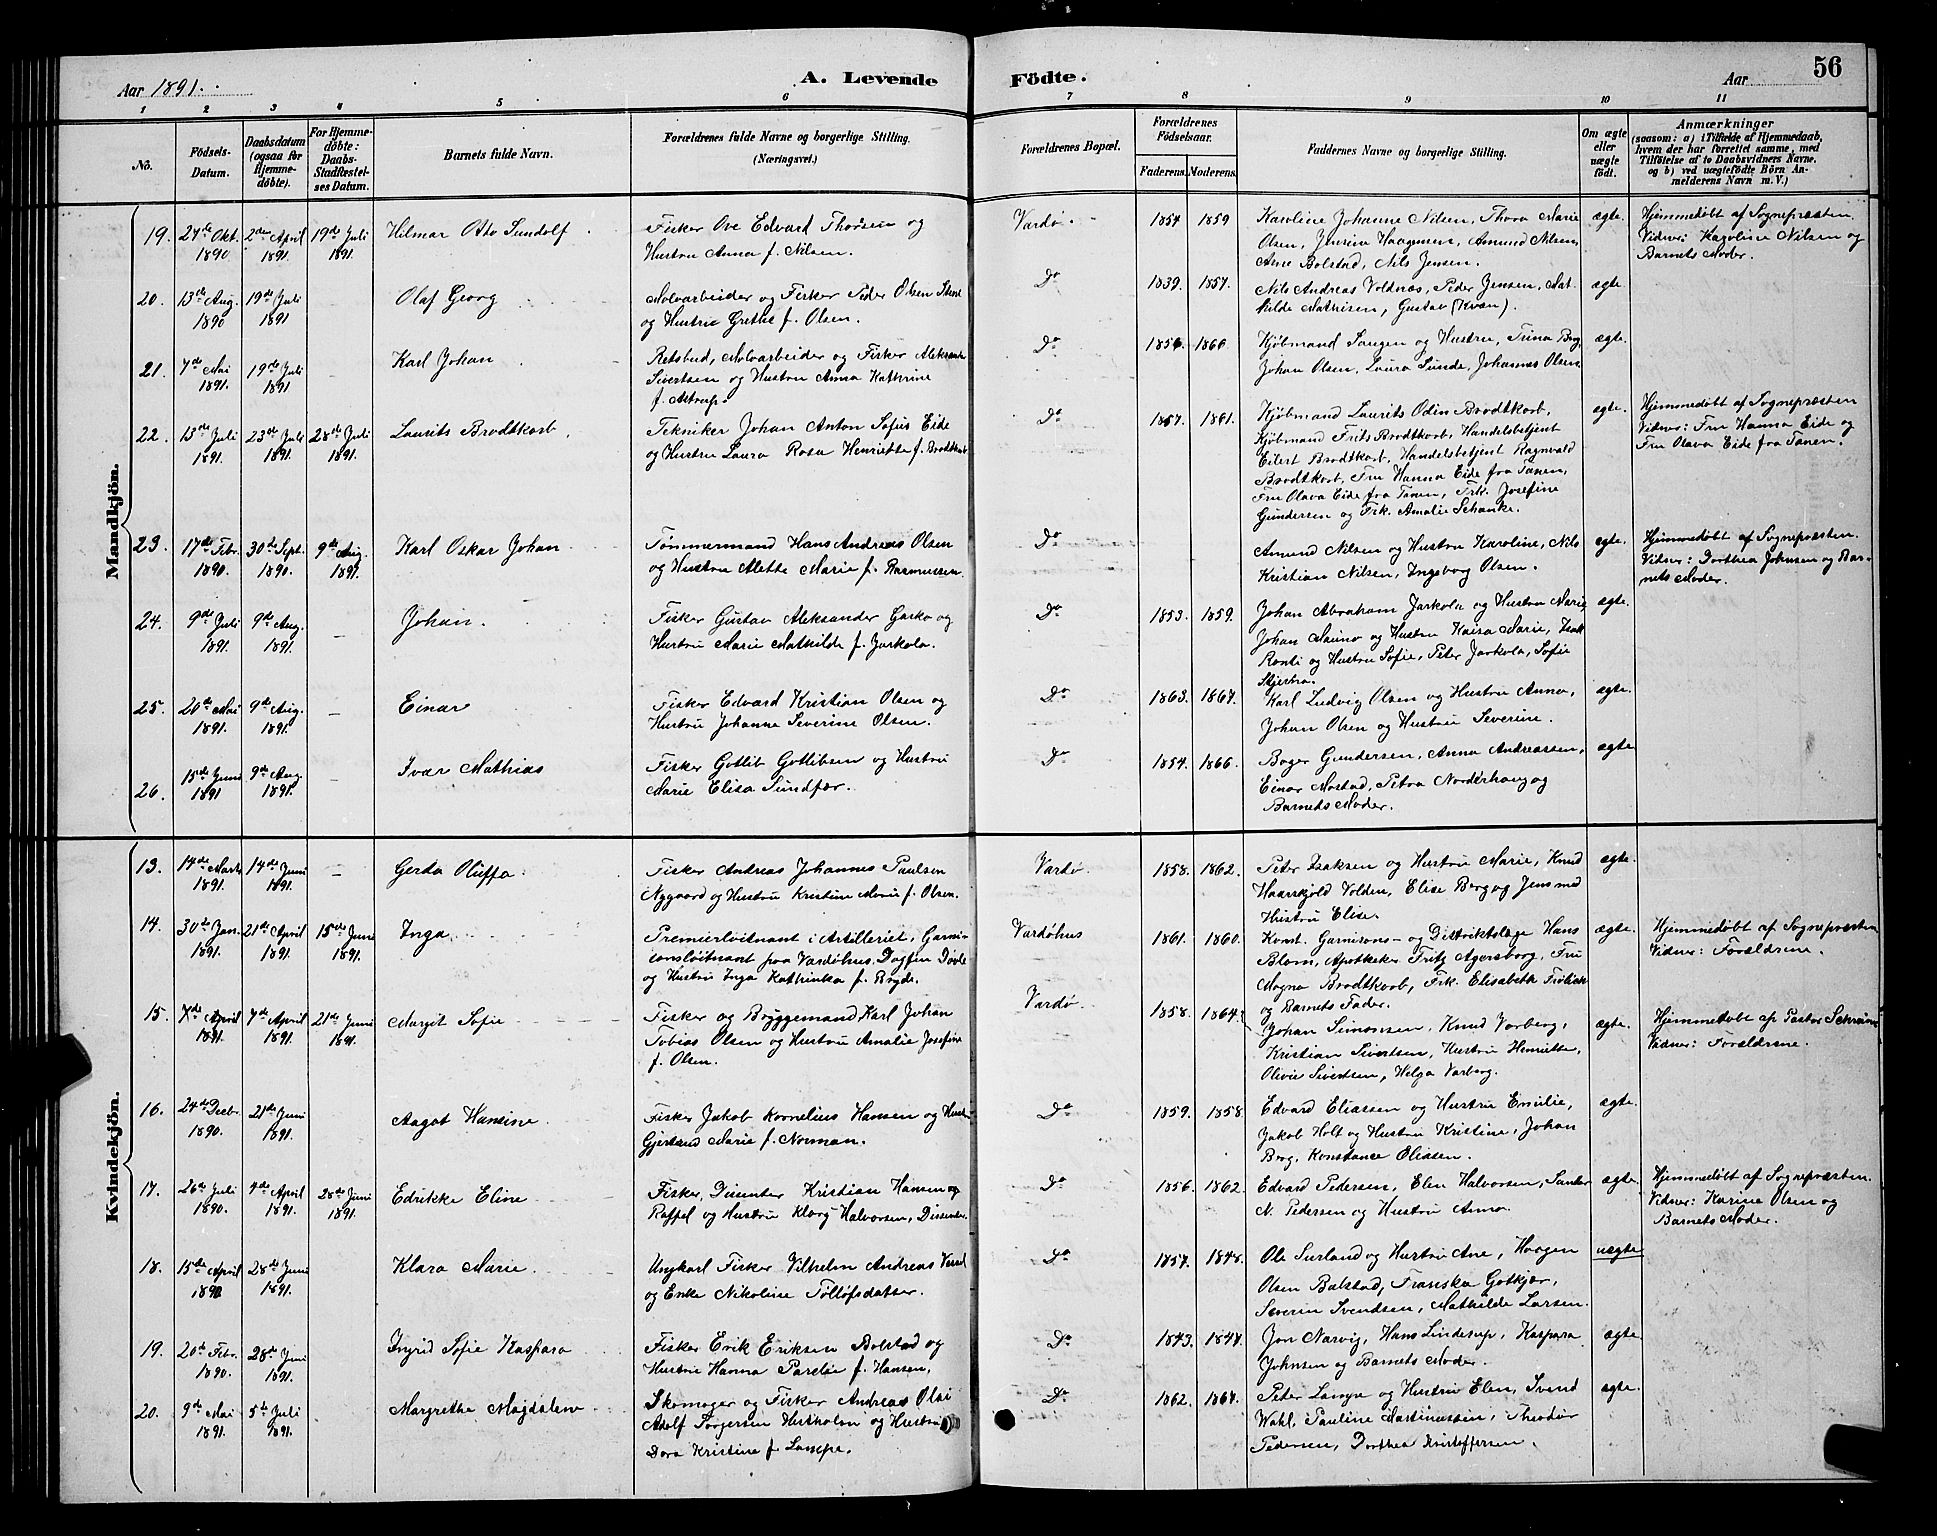 Aar 1891.
A. Levende
Födte.
Aar
56
1 2 3 4 5 6 7 8 9 10 11
Nö.
Födsels-
Datum.
Daabsdatum
(ogsaa for
Hjemme-
döbte).
For Hjemme-
döbte:
Daabs-
Stadfæstel-
ses Datum.
Barnets fulde Navn.
Forældrenes fulde Navne og borgerlige Stilling.
(Næringsvei.)
Forældrenes Bopæl.
Forældrenes
Födselsaar.
Faderens. Moderens.
Faddernes Navne og borgerlige Stilling.
Om ægte
eller
uægte
födt.
Anmærkninger
(saasom: a) i Tilfælde af Hjemmedaab,
hvem der har forrettet samme, med
Tilföielse af to Daabsvidners Navne,
og b) ved uægtefödte Börn An-
melderens Navn m. V.)
Mandkjön.
19. 27de Okt. 1890 2den April 1891. 19de Juli 1891.
Hilmar Oto Sundolf
Fisker Ove Edvard Thorsen og
Hustru Anna f. Nilsen.
Vardø. 1854 1859
Karoline Johanne Nilsen, Thora Marie
Olsen, Jensine Haagensen, Amund Nilsen,
Arne Bolstad, Nils Jensen.
ægte.
Hjemmedøbt af Sognepræsten
Vidner: Karoline Nilsen og
Barnets Moder.
20. 13de Aug. 1890 19de Juli 1891
Olaf Georg
Molvarbeider og Fisker Peder Olsen
og Hustru Grethe f. Olsen.
Do 1839. 1857.
Nils Andreas Voldnæs, Peder Jensen, Mat-
hilde Mathisen, Gustav (Kvæn).
ægte.
21. 7de Mai 1891. 19de Juli 1891. –
Karl Johan
Retsbud, Molvarbeider og Fisker
Sivertsen og Hustru Anna Kathrine
f. Astrup.
Do 1856. 1866.
Kjøbmand Saugen og Hustru, Trina Berg,
Johan Olsen, Laura Sunde, Johannes Olsen
ægte.
22. 13de Juli 1891. 23de Juli 1891. 28de Juli 1891.
Laurits Brodtkorb
Tekniker Johan Anton Sofus Eide
og Hustru Laura Rosa Henriette f. Brodtkorb
Do 1857. 1861.
Kjøbmand Laurits Odin Brodtkorb,
Kjøbmand Frits Brodtkorb, Handelsbetjent
Eilert Brodtkorb, Handelsbetjent Ragnvald
Brodtkorb, Fru Hanna Eide fra Tanen,
Fru Olava Eide fra Tanen, Frk. Josefine
Gundersen og Frk. Amalie Schanke.
ægte.
Hjemmedøbt af Sognepræsten
Vidner: Fru Hanna Eide og
Fru Olava Eide fra Tanen.
23. 17de Febr. 1890. 30te Sept. 1890. 9de Aug. 1891.
Karl Oskar Johan
Tømmermand Hans Andreas Olsen
og Hustru Alette Marie f. Rasmussen.
Do
Amund Nilsen og Hustru Karoline, Nils
Kristian Nilsen, Ingeborg Olsen.
ægte.
Hjemmedøbt af Sognepræsten.
Vidner: Dorthea Johnsen og Bar-
nets Moder.
24. 9de Juli 1891. 9de Aug. 1891. –
Johan.
Fisker Gustav Aleksander Garko og
Hustru Marie Mathilde f. Jarkola.
Do 1853. 1859.
Johan Abraham Jarkola og Hustru Marie
Johan Mauno og Hustru Kaisa Marie, Isak
Ronti og Hustru Sofie, Peter Jarkola, Sofie
ægte.
25. 20de Mai 1891. 9de Aug. 1891. –
Einar
Fisker Edvard Kristian Olsen og
Hustru Johanne Severine Olsen.
Do 1863. 1867.
Karl Ludvig Olsen og Hustru Anna,
Johan Olsen og Hustru Severine.
ægte.
26. 15de Juni 1891 9de Aug. 1891. –
Ivar Mathias
Fisker Gotlib Gotlibsen og Hustru
Marie Elisa Sundfær.
Do 1854. 1866.
Boger Gundersen, Anna Andreassen,
Einar Mostad, Petra Norderhaug og
Barnets Moder.
ægte
Kvindekjön.
13. 14de Marts 1891. 14de Juni 1891. –
Gerda Oluffa
Fisker Andreas Johannes Paulsen
Nygaard og Hustru Kristine Marie f. Olsen.
Vardø 1858. 1862.
Peter Isaksen og Hustru Marie, Knud
Haarskjold Volden, Elise Berg og Jens med
Hustru Elise.
ægte.
14. 30te Jan. 1891. 21de April 1891. 15de Juni 1891.
Inga
Premierløitnant i Artilleriet, Garni-
sonsløitnant paa Vardøhus, Dagfin
og Hustru Inga Kathinka f. Bryde.
Vardøhus 1861. 1860.
Konst. Garnisons- og Distriktslæge Hans
Blom, Apotheker Fritz Agersborg, Fru
Magna Brodtkorb, Frk. Elisabeth Frølich
og Barnets Fader.
ægte.
Hjemmedøbt af Sognepræsten
Vidner: Forældrene.
15. 7de April 1891. 7de April 1891. 21de Juni 1891.
Margit Sofie
Fisker og Bryggemand Karl Johan
Tobias Olsen og Hustru Amalie Josefine
f. Olsen.
Vardø 1858. 1864.
Johan Simonsen, Knud Varberg,
Kristian Sivertsen, Hustru Henriette,
Olivie Sivertsen, Helga Varberg.
ægte.
Hjemmedøbt af Pastor
Vidner: Forældrene.
16. 24de Decbr. 1890. 21de Juni 1891.
Aagot Hansine
Fisker Jakob Kornelius Hansen og Hustru
Gjertrud Marie f. Norman.
Do 1859. 1858.
Edvard Eliassen og Hustru Emilie,
Jakob Holt og Hustru Kristine, Johan
Berg, Konstance Oliasen.
ægte.
17. 26de Juli 1890. 4de April 1891. 28de Juni 1891.
Edrikke Eline
Fisker, Dissenter Kristian Hansen
Raffel og Hustru Klary Halvorsen, Dissenter.
Do 1856. 1862.
Edvard Pedersen, Elen Halvorsen, Santer
N. Pedersen og Hustru Anna.
ægte.
Hjemmedøbt af Sognepræsten.
Vidner: Karine Olsen og
Barnets Moder.
18. 15de April 1890. 28de Juni 1891.
Klara Marie
Ungkarl Fisker Vilhelm Andreas Vessel
og Enke Nikoline Tollofsdatter.
Do 1857. 1848.
Ole Surland og Hustru Ane, Haagen
Olsen Balstad, Franska Gotkjær,
Severin Svendsen, Mathilde Larsen.
uægte
19. 20de Febr. 1890. 28de Juni 1891.
Ingrid Sofie Kaspara
Fisker Erik Eriksen Bolstad og
Hustru Hanna Parelie f. Hansen.
Do 1843. 1847.
Jon Narvig, Hans Lindesup, Kaspara
Johnsen og Barnets Moder.
ægte
20. 9de Mai 1891. 5te Juli 1891.
Margrethe Magdalene
Skomager og Fisker Andreas Olai
Adolf Jørgensen Hestholm og Hustru
Dora Kristine f. Lampe.
Do 1862. 1867.
Peter Lampe og Hustru Elen, Svend
Wahl, Pauline Martinussen, Theodor
Pedersen, Dorthea Kristoffersen.
ægte.